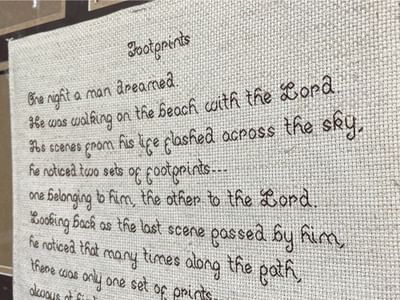 Footprints
One night a man dreamed.
He was walking on the beach with the Lord.
As scenes from his life flashed across the sky,
he noticed two sets of footprints...
one belonging to him, the other to the Lord.
Looking back as the last scene passed by him,
he noticed that many times along the path,
there was only one set of prints...
always at